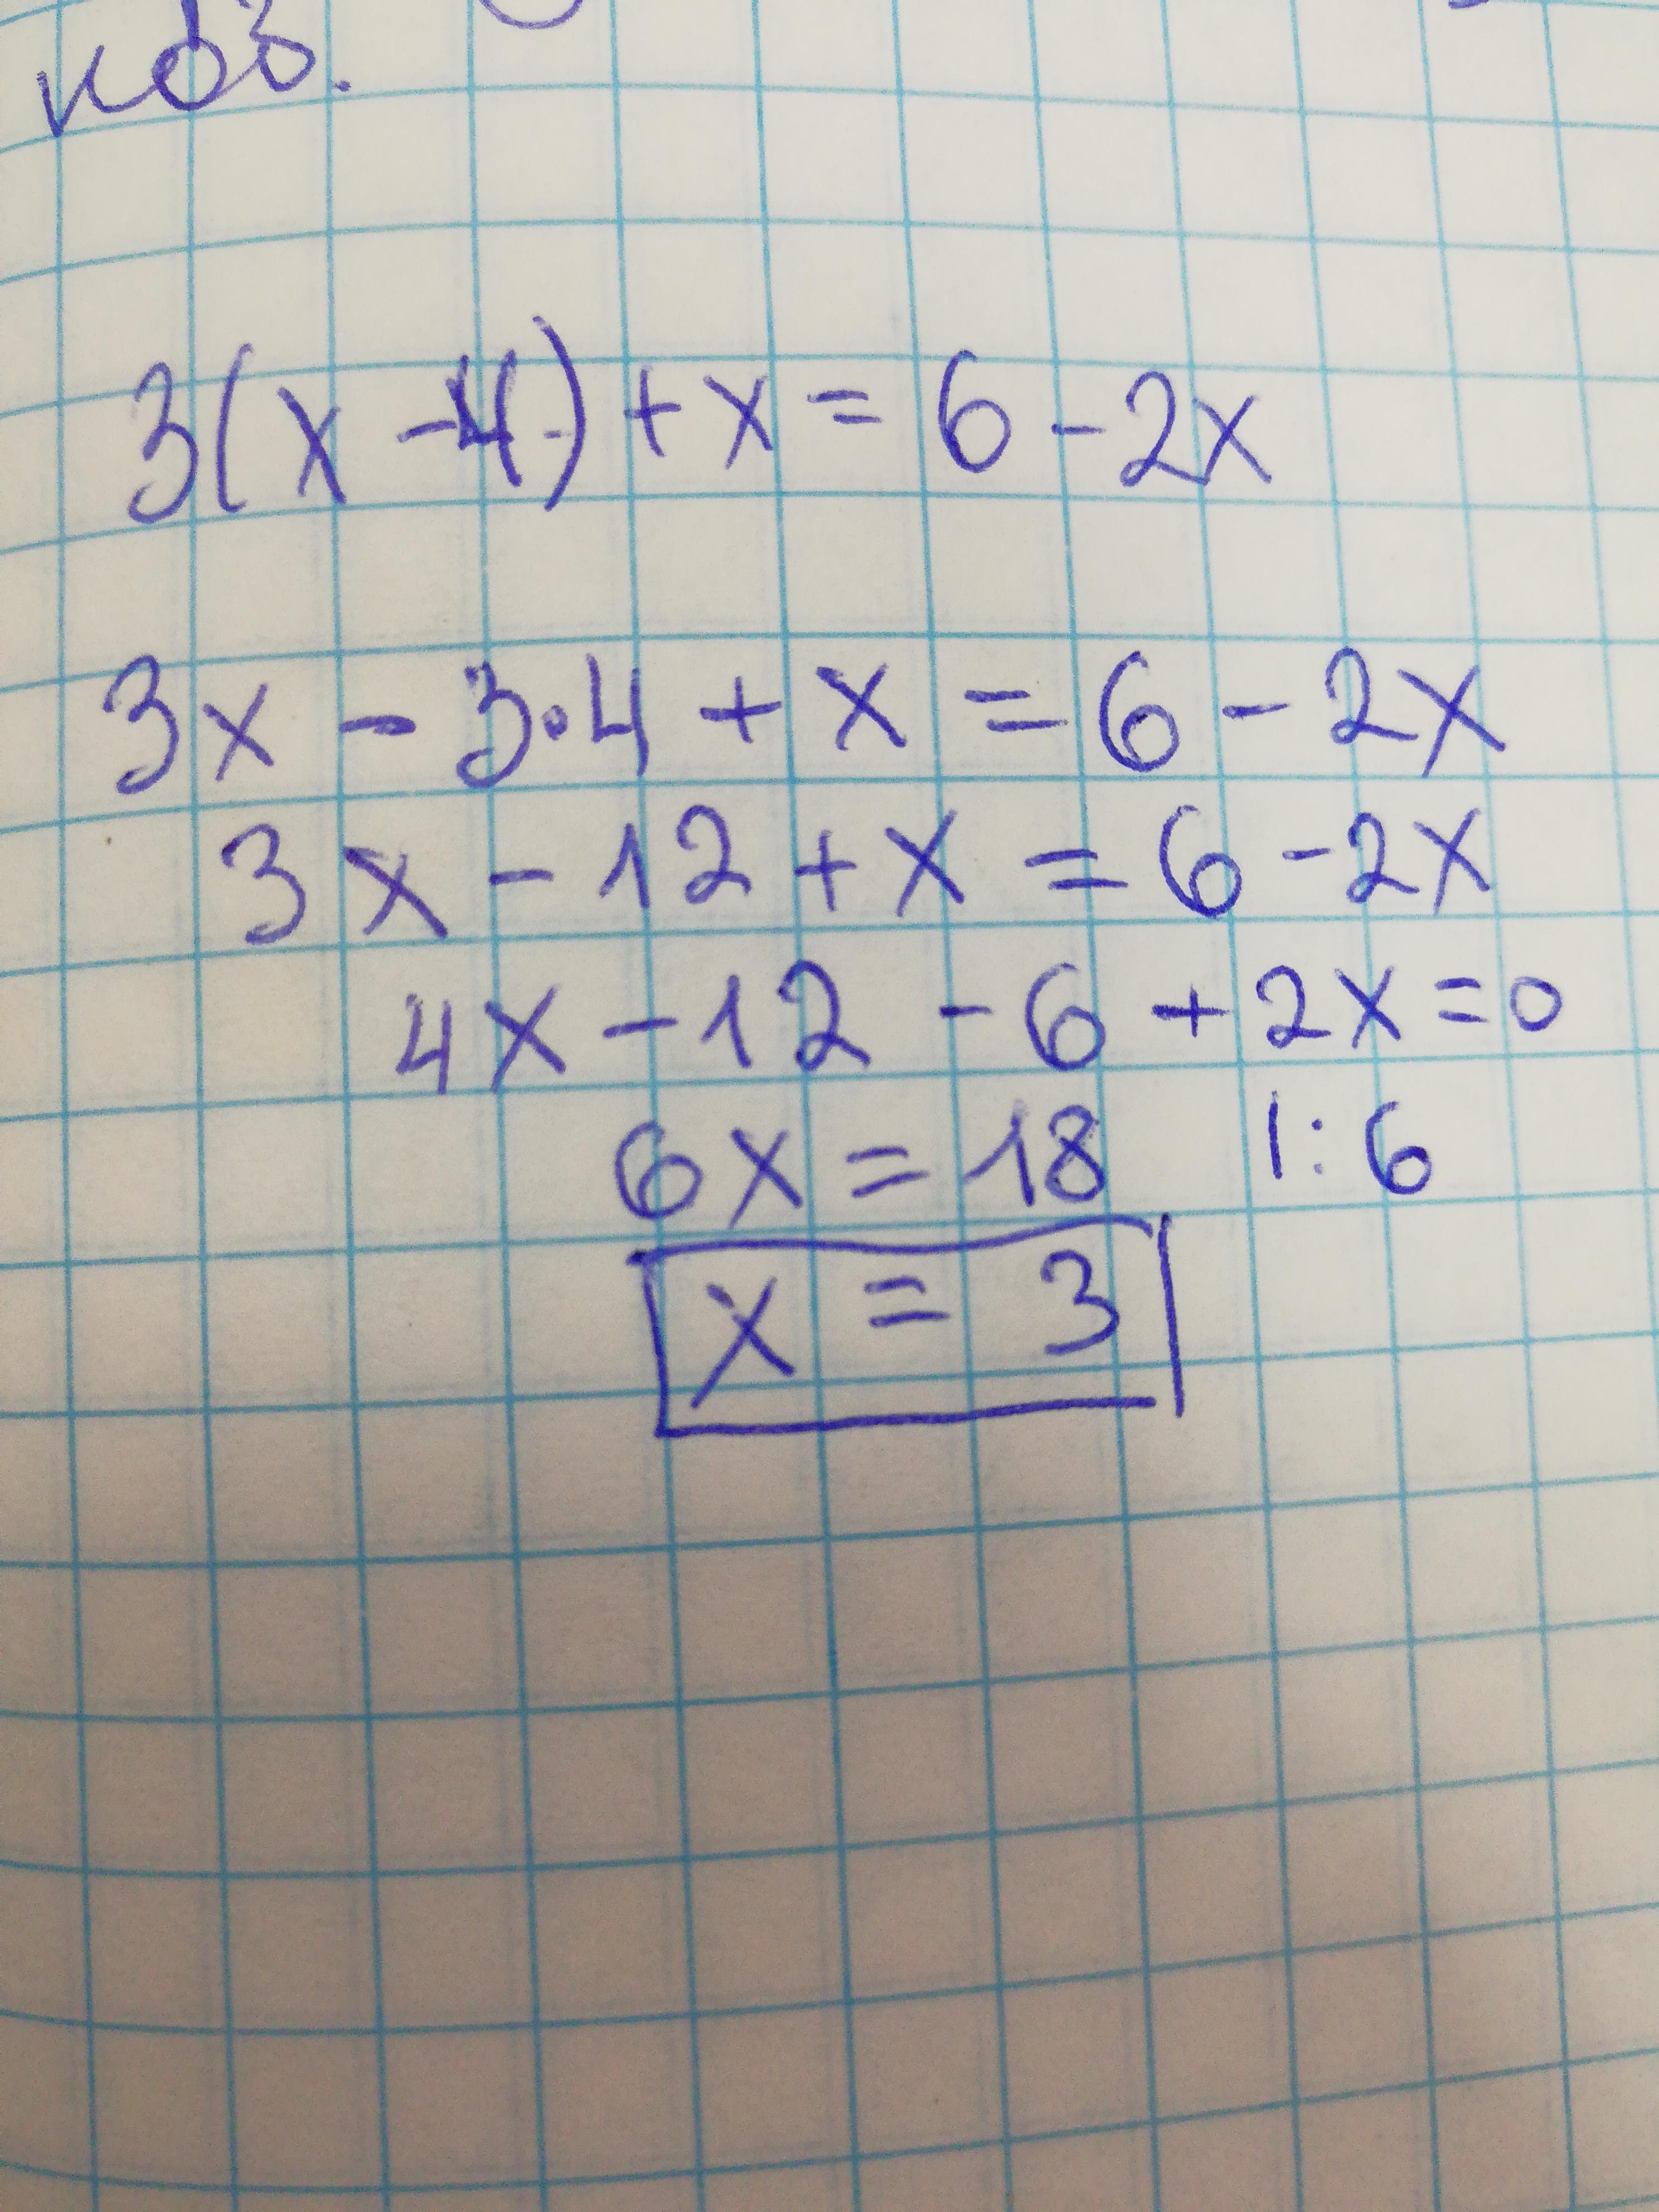 3(x-4)+x=6-2x
3x-3·4+x=6-2x
3x-12+x=6-2x
4x-12-6+2x=0
6x=18 |:6
x=3